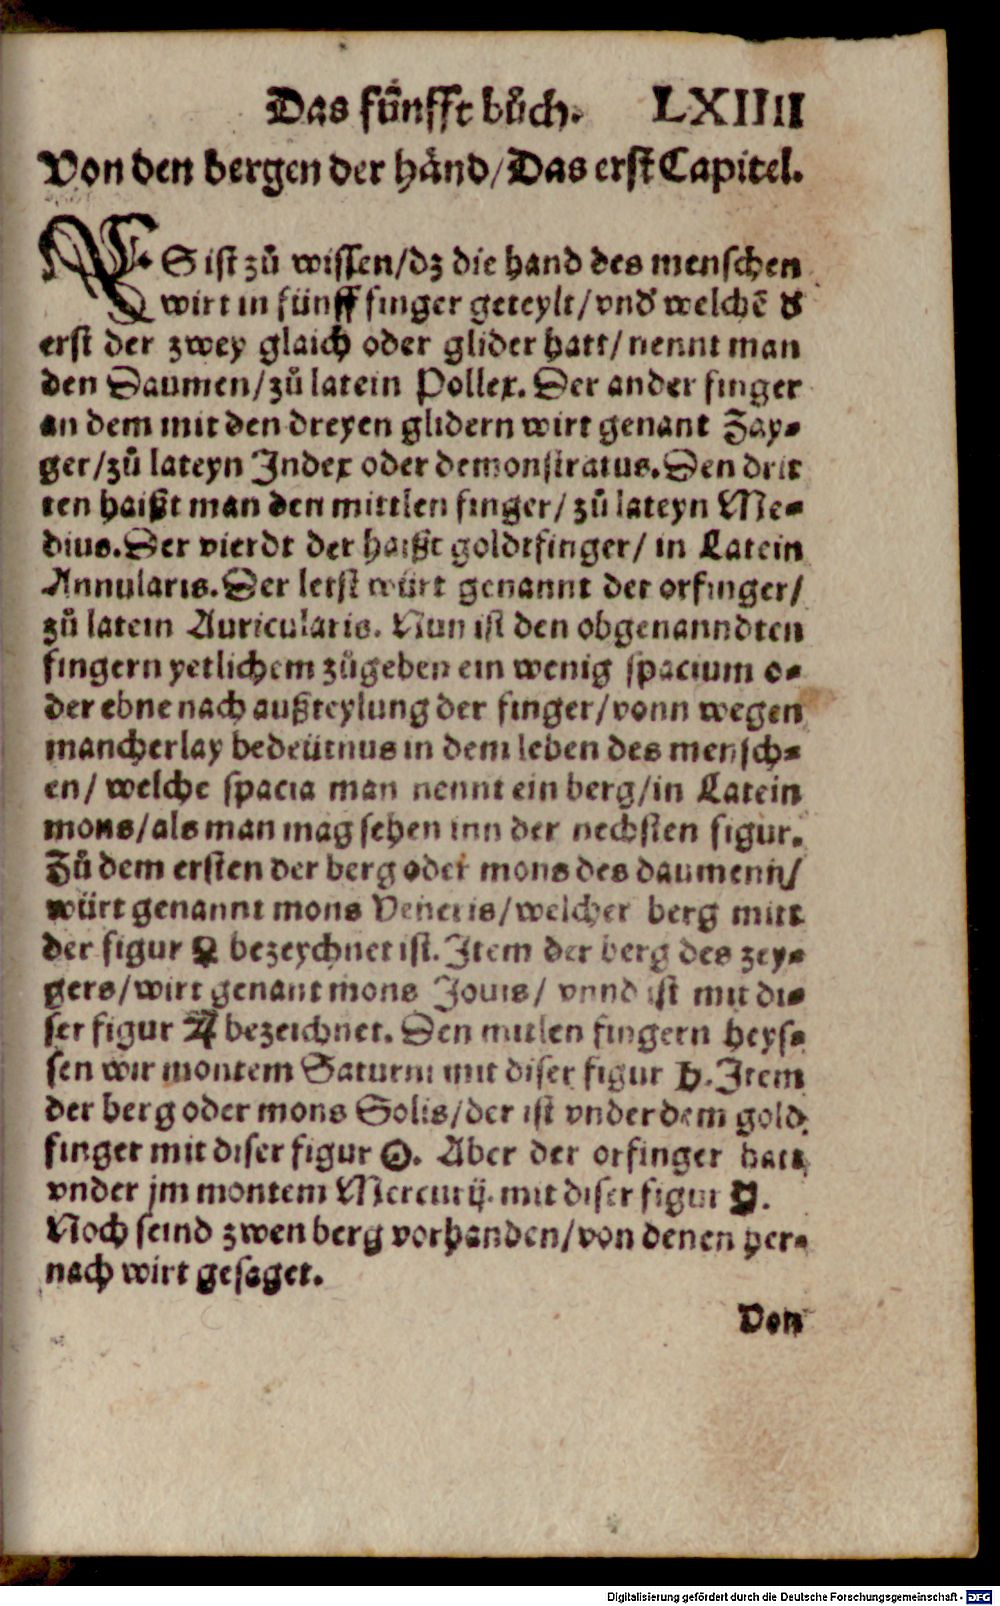 Das fünfft bůch. LXIIII
Von den bergen der händ/Das erst Capitel.
ES ist zů wissen/dz die hand des menschen
wirt in fünff finger geteylt/vnd̕ welchē d̕
erst der zwey glaich oder glider hatt/nennt man
den Daumen/zů latein Pollex. Der ander finger
an dem mit den dreyen glidern wirt genant Zay-
ger/zů lateyn Index oder demonstratus. Den drit
ten haißt man den mittlen finger/ zů lateyn Me-
dius. Der vierdt der haißt goldtfinger/ in Latein
Annularis. Der letst würt genannt der orfinger/
zů latein Auricularis. Nun ist den obgenanndten
fingern yetlichem zůgeben ein wenig spacium o-
der ebne nach außteylung der finger/vonn wegen
mancherlay bedeütnus in dem leben des mensch-
en/ welche spacia man nennt ein berg/in Latein
mons/als man mag sehen inn der nechsten figur.
Zů dem ersten der berg oder mons des daumenn/
würt genannt mons Veneris/welcher berg mitt
der figur ♀ bezeychnet ist. Item der berg des zey-
gers/wirt genant mons Jouis/ vnnd ist mit di-
ser figur ♃ bezeichnet. Den mitlen fingern heys-
sen wir montem Saturni mit diser figur ♄. Item
der berg oder mons Solis/der ist vnder dem gold
finger mit diser figur ☉. Aber der orfinger hatt
vnder jm montem Mercurij. mit diser figur ☿.
Noch seind zwen berg vorhanden/von denen her-
nach wirt gesaget.
Von
Digitalisierung gefördert durch die Deutsche Forschungsgemeinschaft - DFG